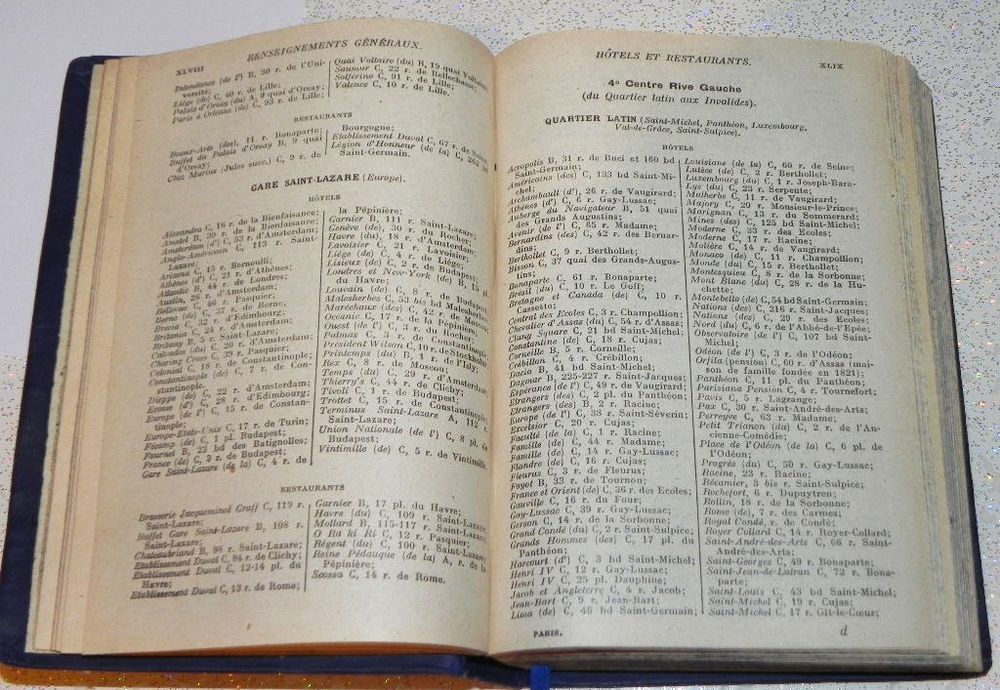 XLVIII
RENSEIGNEMENTS GÉNÉRAUX.
Intendance (de l') B, 50 r. de l'Université;
Liège (de) C, 40 r. de Lille;
Palais d'Orsay (du) A, 9 quai d'Orsay;
Paris à Orléans (de) C, 93 r. de Lille;
Quai Voltaire (du) B, 19 quai Voltaire;
Saumur C, 22 r. de Bellechasse;
Solférino C, 91 r. de Lille;
Valence C, 10 r. de Lille.
RESTAURANTS
Beaux-Arts (des), 11 r. Bonaparte;
Buffet du Palais d'Orsay B, 9 quai
d'Orsay;
Chez Marius (Jules succ.) C, 9 r. de
Bourgogne;
Etablissement Duval C, 67 r. de
Légion d'Honneur (de la) C,
Saint-Germain.
GARE SAINT-LAZARE (Europe).
HÔTELS
Alexandra C, 16 r. de la Bienfaisance;
Amsted B, 30 r. de la Bienfaisance;
Amsterdam (d') C, 53 r. d'Amsterdam;
Anglo-Américain C, 113 r. Saint-
Lazare;
Arizona C, 15 r. Bernoulli;
Athènes (d') C, 21 r. d'Athènes;
Atlantic B, 44 r. de Londres;
Austin, 26 r. d'Amsterdam;
Bellevue, 46 r. Pasquier;
Berne (de) C, 37 r. de Berne;
Brescia C, 32 r. d'Edimbourg;
Britannia B, 24 r. d'Amsterdam;
Britany B, 5 r. Saint-Lazare;
Calvados (du) C, 20 r. d'Amsterdam;
Charing Cross C, 39 r. Pasquier;
Colonial C, 18 r. de Constantinople;
Constantinople (de) C, 7 r. de Con-
stantinople;
Dieppe (de) C, 22 r. d'Amsterdam;
Ecosse (d') C, 28 r. d'Edimbourg;
Europe (de l') C, 15 r. de Constan-
tinople;
Europe-Etats-Unis C, 17 r. de Turin;
Fécamp (de) C, 1 pl. Budapest;
Fournet B, 23 bd des Batignolles;
France (de) C, 3 r. de Budapest;
Gare Saint-Lazare (de la) C, 4 r. de
la Pépinière;
Garnier B, 111 r. Saint-Lazare;
Genève (de), 30 r. du Rocher;
Havre (du), 18 r. d'Amsterdam;
Lavoisier C, 21 r. Lavoisier;
Liège (de) C, 4 r. de Liège;
Lisieux (de) C, 2 r. de Budapest;
Londres et New-York (de) B, 15 pl.
du Havre;
Louvain (de) C, 8 r. de Budapest;
Malesherbes C, 53 bis bd Malesherbes;
Maréchaux (des) C, 42 r. de Moscou;
Océanic C, 17 r. de la Pépinière;
Ouest (de l') C, 3 r. du Rocher;
Palmas C, 3 r. de Constantinople;
Président Wilson C, 10 r. de Stockholm;
Printemps (du) B, 1 r. de l'Isly;
Rex C, 8 r. de Moscou;
Temps (du) C, 29 r. d'Amsterdam;
Thierry's C, 44 r. de Clichy;
Tivoli C, 1 r. de Budapest;
Trottet C, 15 r. de Constantinople;
Terminus Saint-Lazare A, 112 r.
Saint-Lazare;
Union Nationale (de l') C, 8 pl. de
Budapest;
Vintimille (de) C, 5 r. de Vintimille
RESTAURANTS
Brasserie Jacqueminot Graff C, 119 r.
Saint-Lazare;
Buffet Gare Saint-Lazare B, 108 r.
Saint-Lazare;
Chateaubriand B, 98 r. Saint-Lazare;
Etablissement Duval C, 84 r. de Clichy;
Etablissement Duval C, 12-14 pl. du
Havre;
Etablissement Duval C, 13 r. de Rome;
Garnier B, 17 pl. du Havre;
Havre (du) C, 109 r. Saint-Lazare;
Mollard B, 115-117 r. Saint-Lazare;
O Ra ki Ri C, 12 r. Pasquier;
Régent (du) C, 100 r. Saint-Lazare;
Reine Pédauque (de la) A, r. de la
Pépinière;
Scossa C, 14 r. de Rome.
HÔTELS ET RESTAURANTS.
XLIX
4º Centre Rive Gauche
(du Quartier latin aux Invalides).
QUARTIER LATIN (Saint-Michel, Panthéon, Luxembourg,
Val-de-Grâce, Saint-Sulpice).
HÔTELS
Acropolis B, 31 r. de Buci et 160 bd
Saint-Germain;
Américains (des) C, 133 bd Saint-Mi-
chel;
Archambault (d'), 26 r. de Vaugirard;
Athènes (d') C, 6 r. Gay-Lussac;
Auberge du Navigateur B, 51 quai
des Grands Augustins;
Avenir (de l') C, 65 r. Madame;
Bernardins (des) C, 42 r. des Bernar-
dins;
Berthollet C, 9 r. Berthollet;
Bisson C, 37 quai des Grands-Augus-
tins;
Bonaparte C, 61 r. Bonaparte;
Brésil (du) C, 10 r. Le Goff;
Bretagne et Canada (de) C, 10 r.
Cassette;
Central des Ecoles C, 3 r. Champollion;
Chevalier d'Assas (du) C, 54 r. d'Assas;
Clany Square C, 21 bd Saint-Michel;
Constantine (de) C, 18 r. Cujas;
Corneille B, 5 r. Corneille;
Crébillon C, 4 r. Crébillon;
Dacia B, 41 bd Saint-Michel;
Dagmar B, 225-227 r. Saint-Jacques;
Espérance (de l') C, 49 r. de Vaugirard;
Etrangers (des) C, 2 pl. du Panthéon;
Etrangers (des) B, 2 r. Racine;
Europe (de l') C, 38 r. Saint-Séverin;
Excelsior C, 20 r. Cujas;
Faculté (de la) C, 1 r. Racine;
Famille (de) C, 44 r. Madame;
Famille (de) C, 14 r. Gay-Lussac;
Flandre (de) C, 16 r. Cujas;
Fleurus C, 3 r. de Fleurus;
Foyot B, 33 r. de Tournon;
France et Orient (de) C, 36 r. des Ecoles;
Gauville C, 16 r. du Four;
Gay-Lussac C, 39 r. Gay-Lussac;
Gerson C, 14 r. de la Sorbonne;
Grand Condé (du) C, 2 r. Saint-Sulpice;
Grands Hommes (des) C, 17 pl. du
Panthéon;
Harcourt (d') C, 3 bd Saint-Michel;
Henri IV C, 12 r. Gay-Lussac;
Henri IV C, 25 pl. Dauphine;
Jacob et Angleterre C, 4 r. Jacob;
Jean-Bart C, 9 r. Jean-Bart;
Lima (de) C, 46 bd Saint-Germain;
Louisiane (de la) C, 60 r. de Seine;
Lutèce (de) C, 2 r. Berthollet;
Luxembourg (du) C, 1 r. Joseph-Bara;
Lys (du) C, 23 r. Serpente;
Malherbe C, 11 r. de Vaugirard;
Majory C, 20 r. Monsieur-le-Prince;
Marignan C, 13 r. du Sommerard;
Mines (des) C, 125 bd Saint-Michel;
Moderne C, 33 r. des Ecoles;
Moderne C, 17 r. Racine;
Molière C, 14 r. de Vaugirard;
Monaco (de) C, 11 r. Champollion;
Monde (du) C, 15 r. Berthollet;
Montesquieu C, 8 r. de la Sorbonne;
Mont Blanc (du) C, 28 r. de la Hu-
chette;
Montebello (de) C, 54 bd Saint-Germain;
Nations (des) C, 216 r. Saint-Jacques;
Nations (des) C, 29 r. des Ecoles;
Nord (du) C, 6 r. de l'Abbé-de-l'Epée;
Observatoire (de l') C, 107 bd Saint-
Michel;
Odéon (de l') C, 3 r. de l'Odéon;
Orfila (pension) C, 60 r. d'Assas (mai-
son de famille fondée en 1821);
Panthéon C, 11 pl. du Panthéon;
Parisiana Pension C, 4 r. Tournefort;
Pavis C, 5 r. Lagrange;
Pax C, 30 r. Saint-André-des-Arts;
Perreyve C, 63 r. Madame;
Petit Trianon (du) C, 2 r. de l'An-
cienne-Comédie;
Place de l'Odéon (de la) C, 6 pl. de
l'Odéon;
Progrès (du) C, 50 r. Gay-Lussac;
Racine, 23 r. Racine;
Récamier, 3 bis r. Saint-Sulpice;
Rochefort, 6 r. Dupuytren;
Rollin, 18 r. de la Sorbonne;
Rome (de), 7 r. des Carmes;
Royal Condé, r. de Condé;
Royer Collard C, 14 r. Royer-Collard;
Saint-André-des-Arts C, 66 r. Saint-
André-des-Arts;
Saint-Georges C, 49 r. Bonaparte;
Saint-Jean-de-Latran C, 72 r. Bona-
parte;
Saint-Louis C, 43 bd Saint-Michel;
Saint-Michel C, 19 r. Cujas;
Saint-Michel C, 17 r. Gît-le-Cœur;
PARIS.
d